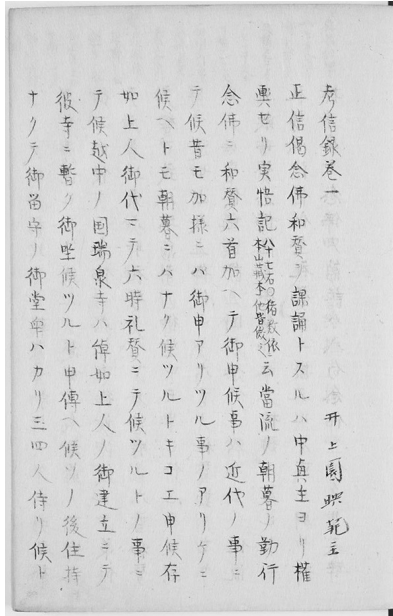 考信録巻一
井上園映範主
正信偈念佛和賛ヲ課誦トスルハ中眞主ヨリ権
輿セリ実悟記云當流ノ朝暮ノ勤行
念佛ニ和賛六首加ヘテ御申候事ハ近代ノ事ニ
テ候昔モ加様ニハ御申アリツル事ノアリケニ
候ヘトモ朝暮ニハナク候ツルトキコエ申候存
如上人御代マテ六時礼賛ニテ候ツルトノ事ニ
テ候越中ノ国瑞泉寺ハ倬如上人ノ御建立ニテ
彼寺ニ暫ク御坐候ツルト申傳ヘ候ソノ後住持
ナクテ御留守ノ御堂衆ハカリ三四人侍リ候ト